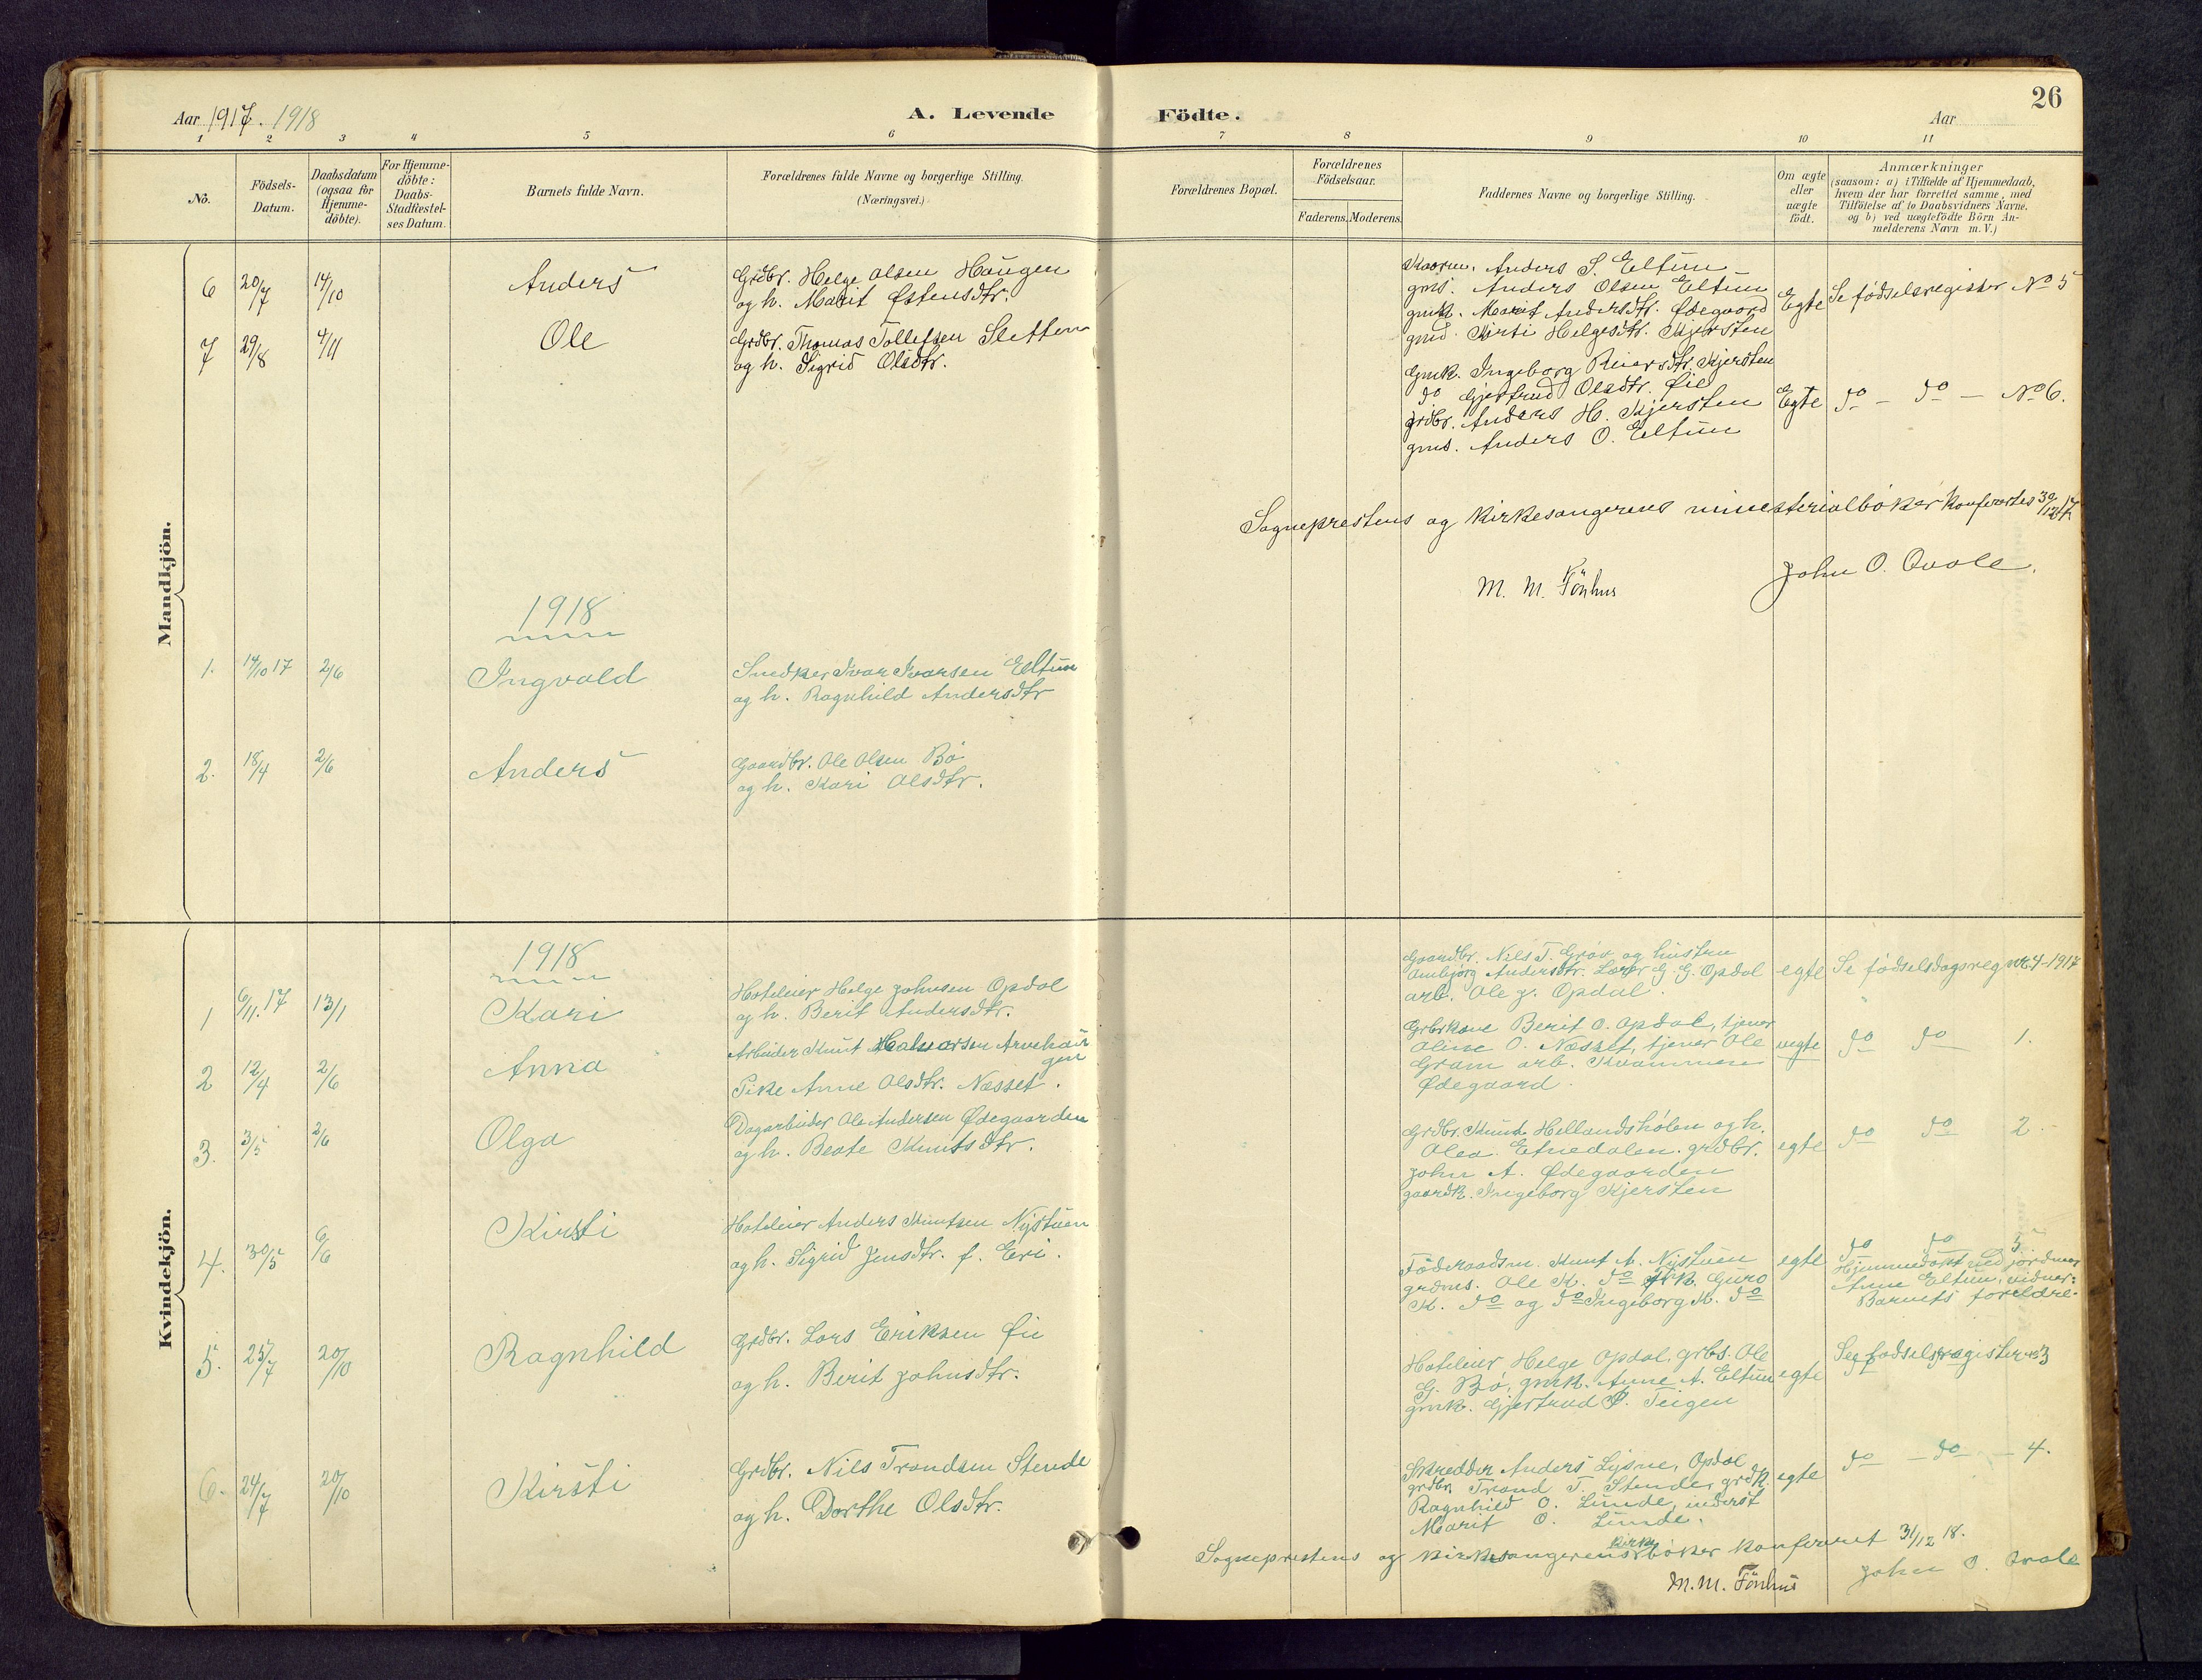 Aar 1917. 1918
A. Levende Födte.
Aar
26
1 2 3 4 5 6 7 8 9 10 11
No.
Födsels-
Datum.
Daabsdatum
(ogsaa for
Hjemme-
döbte).
For Hjemme-
döbte:
Daabs-
Stadfæstel-
ses Datum.
Barnets fulde Navn.
Forældrenes fulde Navne og borgerlige Stilling.
(Næringsvei.)
Forældrenes Bopæl.
Forældrenes
Födselsaar.
Faderens. Moderens.
Faddernes Navne og borgerlige Stilling.
Om ægte
eller
uægte
födt.
Anmærkninger
(saasom: a) i Tilfælde af Hjemmedaab,
hvem der har forrettet samme, med
Tilföielse af to Daabsvidners Navne.
og b) ved uægtefödte Börn An-
melderens Navn m. V.)
Mandkjön.
6 20/7 14/10 Anders
Grdbr. Helge Olsen Haugen
og h. Marit Østensdtr.
Anders S. Eltun
gms. Anders Olsen Eltun
gmk. Marit Andersdtr. Ødegaard
gmd. Kirsti Helgesdtr. Kjersten
Egte
Se födselsregister No 5
7 29/8 4/11 Ole
Grdbr. Thomas Tollefsen Sletten
og h. Sigrid Olsdtr.
Gmk. Ingeborg Reiersdtr. Kjersten
do Gjertrud Olsdtr. Øie
grdbr. Anders H. Kjersten
gms. Anders O. Eltun
Egte
do - do - No 6.
Sogneprestens og kirkesangerens ministerialbøker konfertes 30/12 17
M. M. Fönhus
John O. Qvale.
1918
1. 14/10 17 2/6 Ingvald
Snedker Ivar Ivarsen Eltun
og h. Ragnhild Andersdtr
2. 18/4 2/6 Anders
Gaardbr. Ole Olsen Bö
og h. Kari Olsdtr.
Kvindekjön.
1918
1 6/11. 17 13/1 Kari
Hoteleier Helge Johnsen Opdal
og h. Berit Andersdtr.
Gaardbr. Nils T. Grøv og hustru
Ambjørg Andersdtr. Lærer G. G. Opdal
arb. Ole J. Opdal.
egte
Se födselsdagsreg nr. 4-1917
2 12/4 2/6 Anna
Arbeider Knut Halvorsen Arvehau
gen
Pike Anne Olsdtr. Nøsset.
Grbrkone Berit O. Opdal, tjener
Oline O. Nøsset, tjener Ole
Gram arb. Kvammen
Ødegaard.
uegte
do do 1.
3. 3/5 2/6 Olga
Dagarbeider Ole Andersen Ødegaarden
og h. Beate Knutsdtr.
Grdbr. Knut Hellandshølen og h.
Olea Etnedalen. grdbr.
John A. Ødegaarden
gaardk. Ingeborg Kjersten
egte
do do 2.
4. 30/5 6/6 Kirsti
Hoteleier Anders Knutsen Nystuen
og h. Sigrid Jensdtr. f. Eri.
Föderaadsm. Knut A. Nystuen
grdms. Ole K. do Frk. Guro
K. do og do Ingeborg K. do
egte
do do 5.
Hjemmedøpt ved jordmor
Anne Eltun, vidner:
Barnets foreldre.
5. 25/7 20/10 Ragnhild
Grdbr. Lars Eriksen Øie
og h. Berit Johnsdtr.
Hoteleier Helge Opdal, grbs. Ole
G. Bö, gmk. Anne A. Eltun
gmk. Gjertrud P. Teigen
egte
See fødselsregister no 3
6. 24/7 20/10 Kirsti
Grdbr. Nils Trondsen Stende
og h. Dorthe Olsdtr.
Skredder Anders Lysne, Opdal
grdbr. Trond T. Stende, grdk.
Ragnhild O. Linde, inderst
Marit O. Linde.
egte
do - do - 4.
Sogneprestens og kirkesangerens kirkebøker konferert 31/12 18.
M. M. Fönhus
John O. Qvale